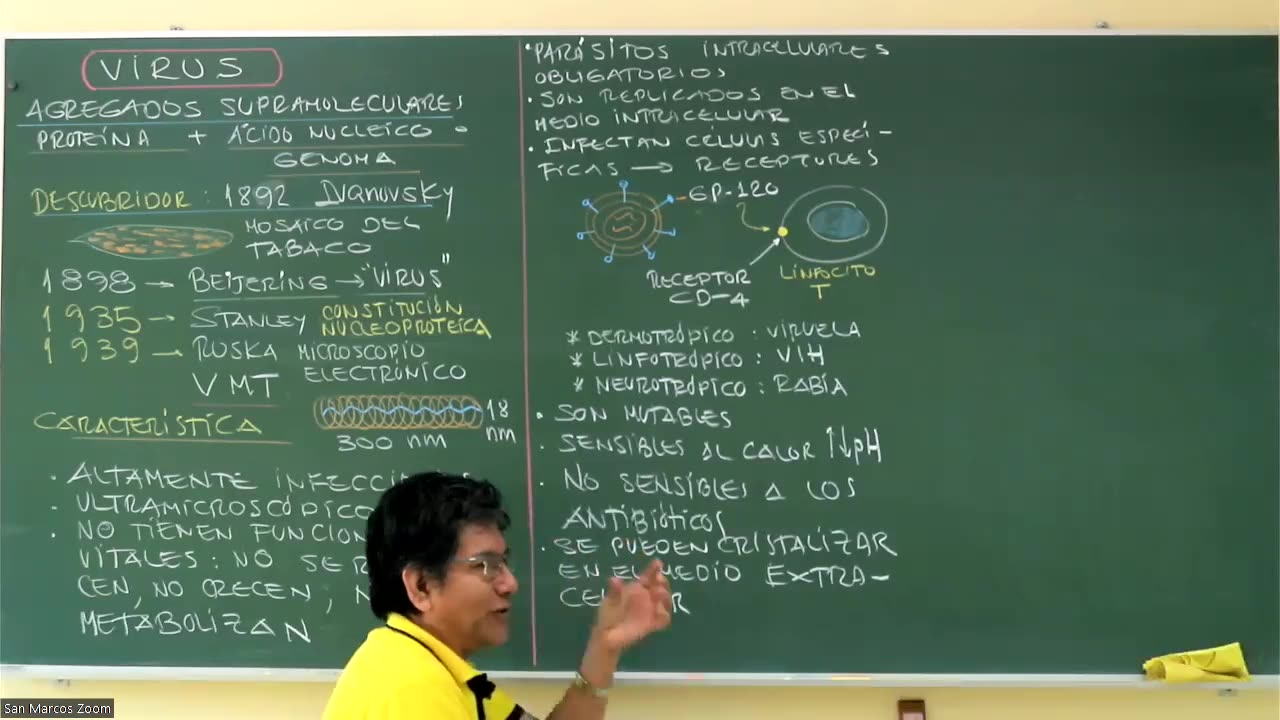 VIRUS
AGREGADOS SUPRAMOLECULARES
PROTEÍNA + ÁCIDO NUCLEICO
GENOMA
DESCUBRIDOR : 1892 Ivanovsky
MOSAICO DEL
TABACO
1898 → BEIJERING → "VIRUS"
1935 → STANLEY CONSTITUCIÓN
NUCLEOPROTEICA
1939 → RUSKA MICROSCOPIO
ELECTRÓNICO
VMT
18
nm
300 nm
CARACTERÍSTICA
· ALTAMENTE
· ULTRAMICROSCÓPICO
· NO TIENEN
VITALES: NO
CEN, NO CRECEN;
METABOLIZAN
· PARÁSITOS INTRACELULARES
OBLIGATORIOS
· SON REPLICADOS EN EL
MEDIO INTRACELULAR
· INFECTAN CÉLULAS ESPECÍ-
FICAS → RECEPTORES
GP-120
RECEPTOR
CD-4
LINFOCITO
T
* DERMOTRÓPICO : VIRUELA
* LINFOTRÓPICO : VIH
* NEUROTRÓPICO : RABIA
· SON MUTABLES
· SENSIBLES AL CALOR ↑↓pH
· NO SENSIBLES A LOS
ANTIBIÓTICOS
· SE PUEDEN CRISTALIZAR
EN EL MEDIO EXTRA-
San Marcos Zoom